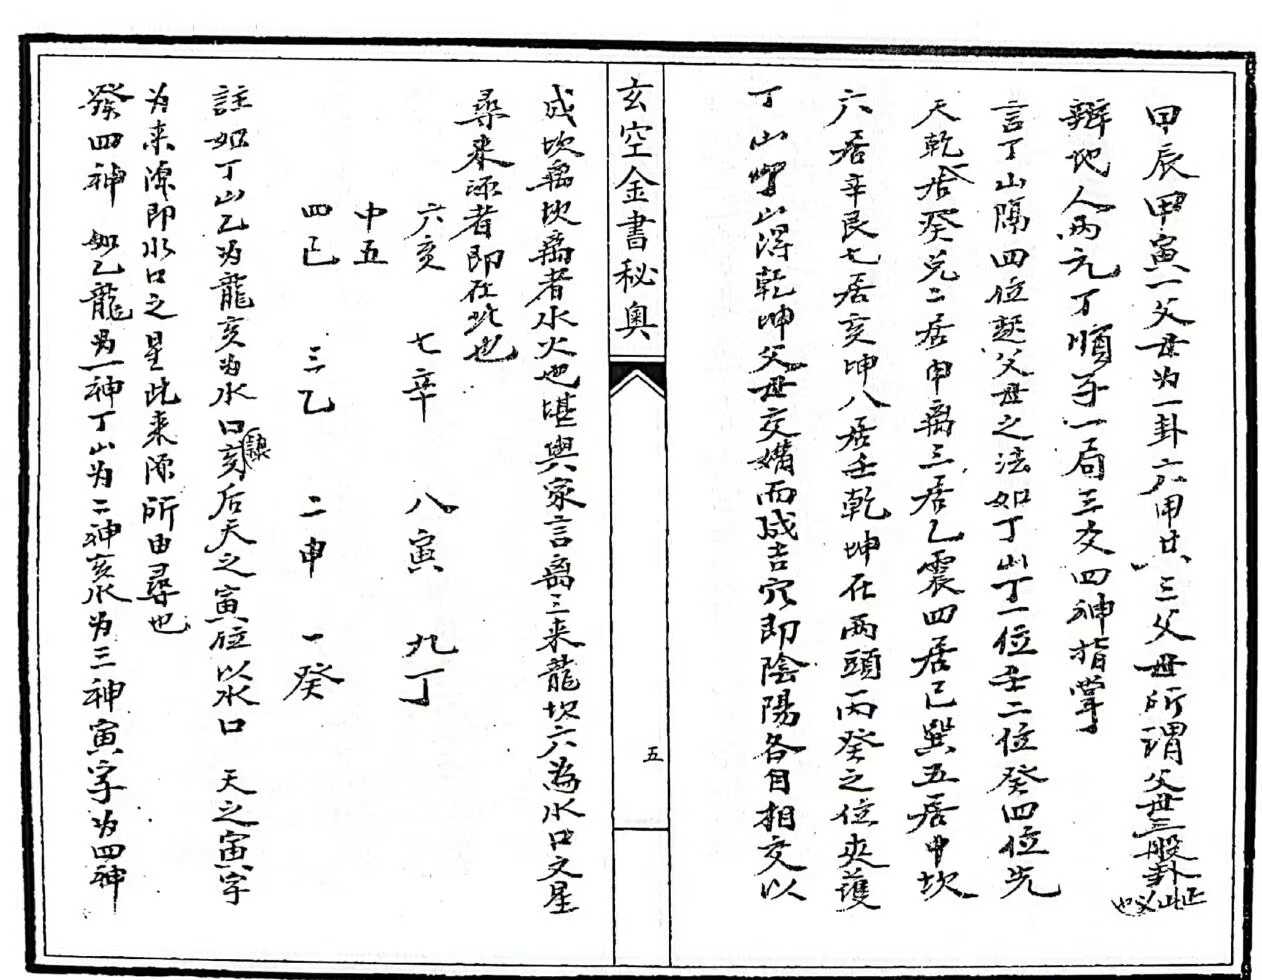 甲辰甲寅一父母为一卦六甲廿三父母所謂父母三般卦正此义也
辨地人兩元丁順子一局三交四神指掌
言丁山隔四位起父母之法如丁山丁一位壬二位癸四位先
天乾一居癸兑二居申离三居乙震四居巳巽五居中坎
六居辛艮七居亥坤八居壬乾坤在两頭丙癸之位夾護
丁山丁山得乾坤父母交媾而成吉穴即陰陽各自相交以
玄空金書秘奥
五
成坎离坎离者水火也堪輿家言离三来龍坎六為水口文星
尋来源者即在此也
六亥 七辛 八寅 九丁
中五
四巳 三乙 二申 一癸
註如丁山乙为龍亥为水口亥禄后天之寅位以水口 天之寅字
为来源即水口之星此来源所由尋也
發四神 如乙龍为一神丁山为二神亥水为三神寅字为四神